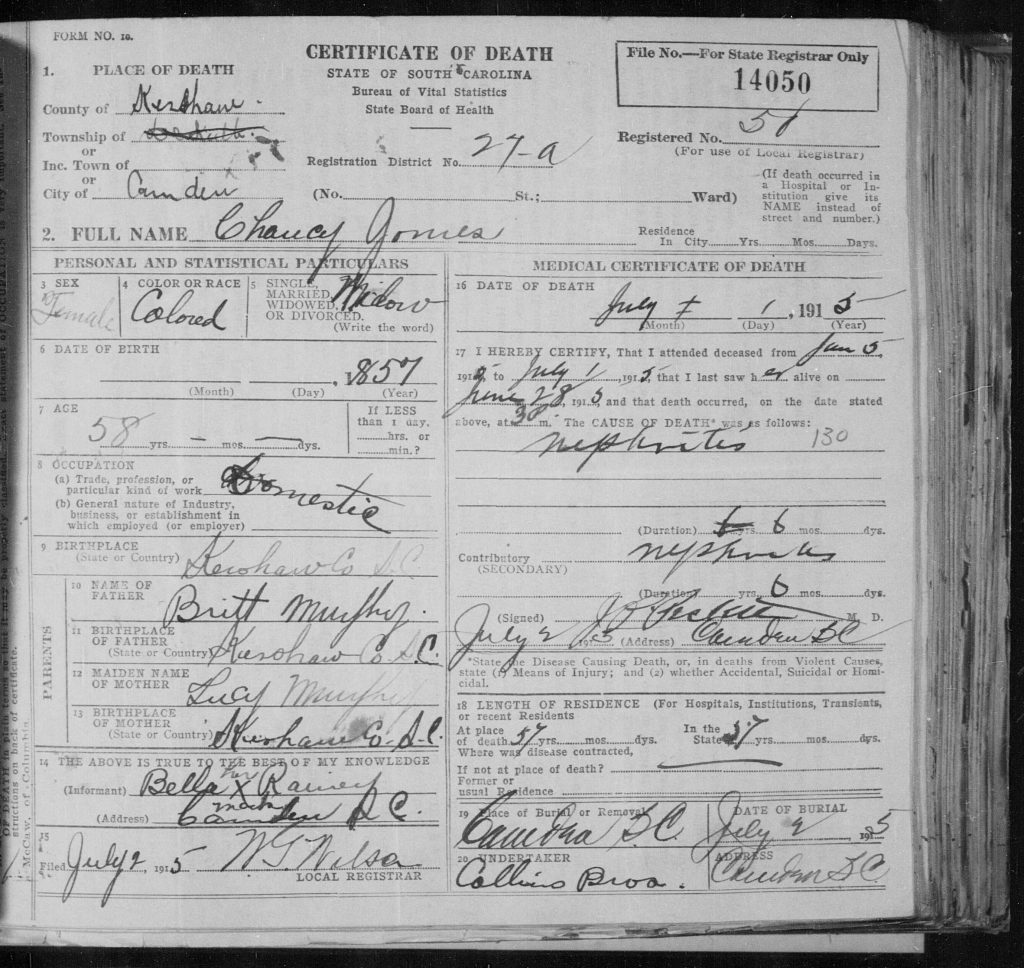 FORM NO. 10.
CERTIFICATE OF DEATH
STATE OF SOUTH CAROLINA
Bureau of Vital Statistics
State Board of Health
File No.—For State Registrar Only
14050
1. PLACE OF DEATH
County of Kershaw.
Township of
or
Inc. Town of
or
City of Camden
Registration District No. 27-a
Registered No.
(For use of Local Registrar)
(No. St.; Ward)
(If death occurred in
a Hospital or In-
stitution give its
NAME instead of
street and number.)
2. FULL NAME Chancy Jones
Residence
In City Yrs. Mos. Days.
PERSONAL AND STATISTICAL PARTICULARS
3 SEX
Female
4 COLOR OR RACE
Colored
5 SINGLE,
MARRIED,
WIDOWED,
OR DIVORCED.
Widow
(Write the word)
6 DATE OF BIRTH
, 1857
(Month) (Day) (Year)
7 AGE
58 yrs. — mos. — dys.
If LESS
than 1 day,
hrs. or
min.?
8 OCCUPATION
(a) Trade, profession, or
particular kind of work
Domestic
(b) General nature of Industry,
business, or establishment in
which employed (or employer)
9 BIRTHPLACE
(State or Country) Kershaw Co S.C
PARENTS
10 NAME OF
FATHER
Britt Murphy.
11 BIRTHPLACE
OF FATHER
(State or Country) Kershaw Co S.C.
12 MAIDEN NAME
OF MOTHER
Lucy Murphy
13 BIRTHPLACE
OF MOTHER
(State or Country) Kershaw Co. S.C.
14 THE ABOVE IS TRUE TO THE BEST OF MY KNOWLEDGE
(Informant) Bella her X mark Rainey
(Address) Camden S.C.
15
Filed July 2, 1915 W.T. Wilson
LOCAL REGISTRAR
MEDICAL CERTIFICATE OF DEATH
16 DATE OF DEATH
July 1, 1915
(Month) (Day) (Year)
17 I HEREBY CERTIFY, That I attended deceased from Jan 5
1915 to July 1, 1915, that I last saw her alive on
June 28, 1915 and that death occurred, on the date stated
above, at m. The CAUSE OF DEATH* was as follows:
nephrites 130
(Duration) yrs. 6 mos. dys.
Contributory nephrites
(SECONDARY)
(Duration) yrs. 6 mos. dys.
(Signed) M. D.
July 2 1915 (Address) Camden S C
*State the Disease Causing Death, or, in deaths from Violent Causes,
state (1) Means of Injury; and (2) whether Accidental, Suicidal or Homi-
cidal.
18 LENGTH OF RESIDENCE (For Hospitals, Institutions, Transients,
or recent Residents
At place
of death 57 yrs. mos. dys.
In the
State 57 yrs. mos. dys.
Where was disease contracted,
If not at place of death?
Former or
usual Residence
19 Place of Burial or Removal
Camden S.C
DATE OF BURIAL
July 2 1915
20 UNDERTAKER
Collins Bros.
ADDRESS
Camden S.C.